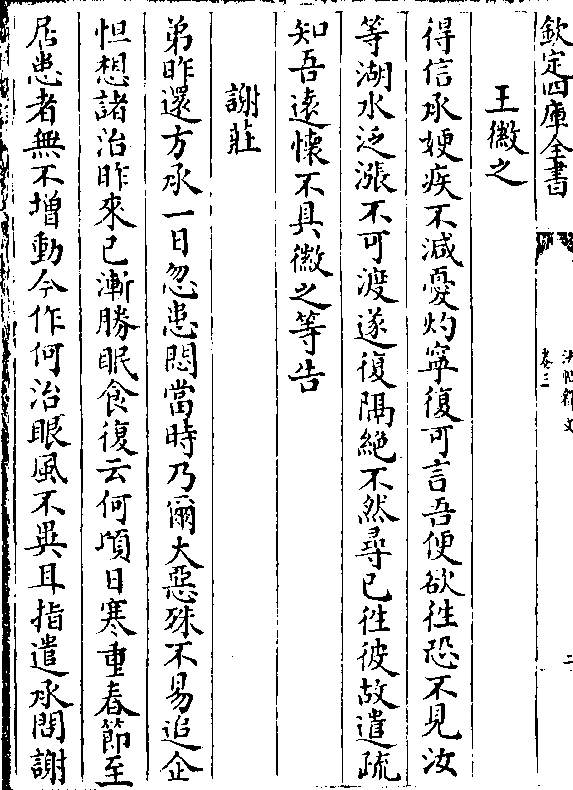 欽定四庫全書
法帖釋文
卷三
二
王徽之
得信承嫂疾不減憂灼寧復可言吾便欲徃恐不見汝
等湖水泛漲不可渡遂復隔絶不然尋已徃彼故遣疏
知吾逺懷不具徽之等告
謝莊
弟昨還方承一日忽患悶當時乃爾大惡殊不易追企
怛想諸治昨來已漸勝眠食復云何頃日寒重春節至
居患者無不增動今作何治眼風不異耳指遣承問謝